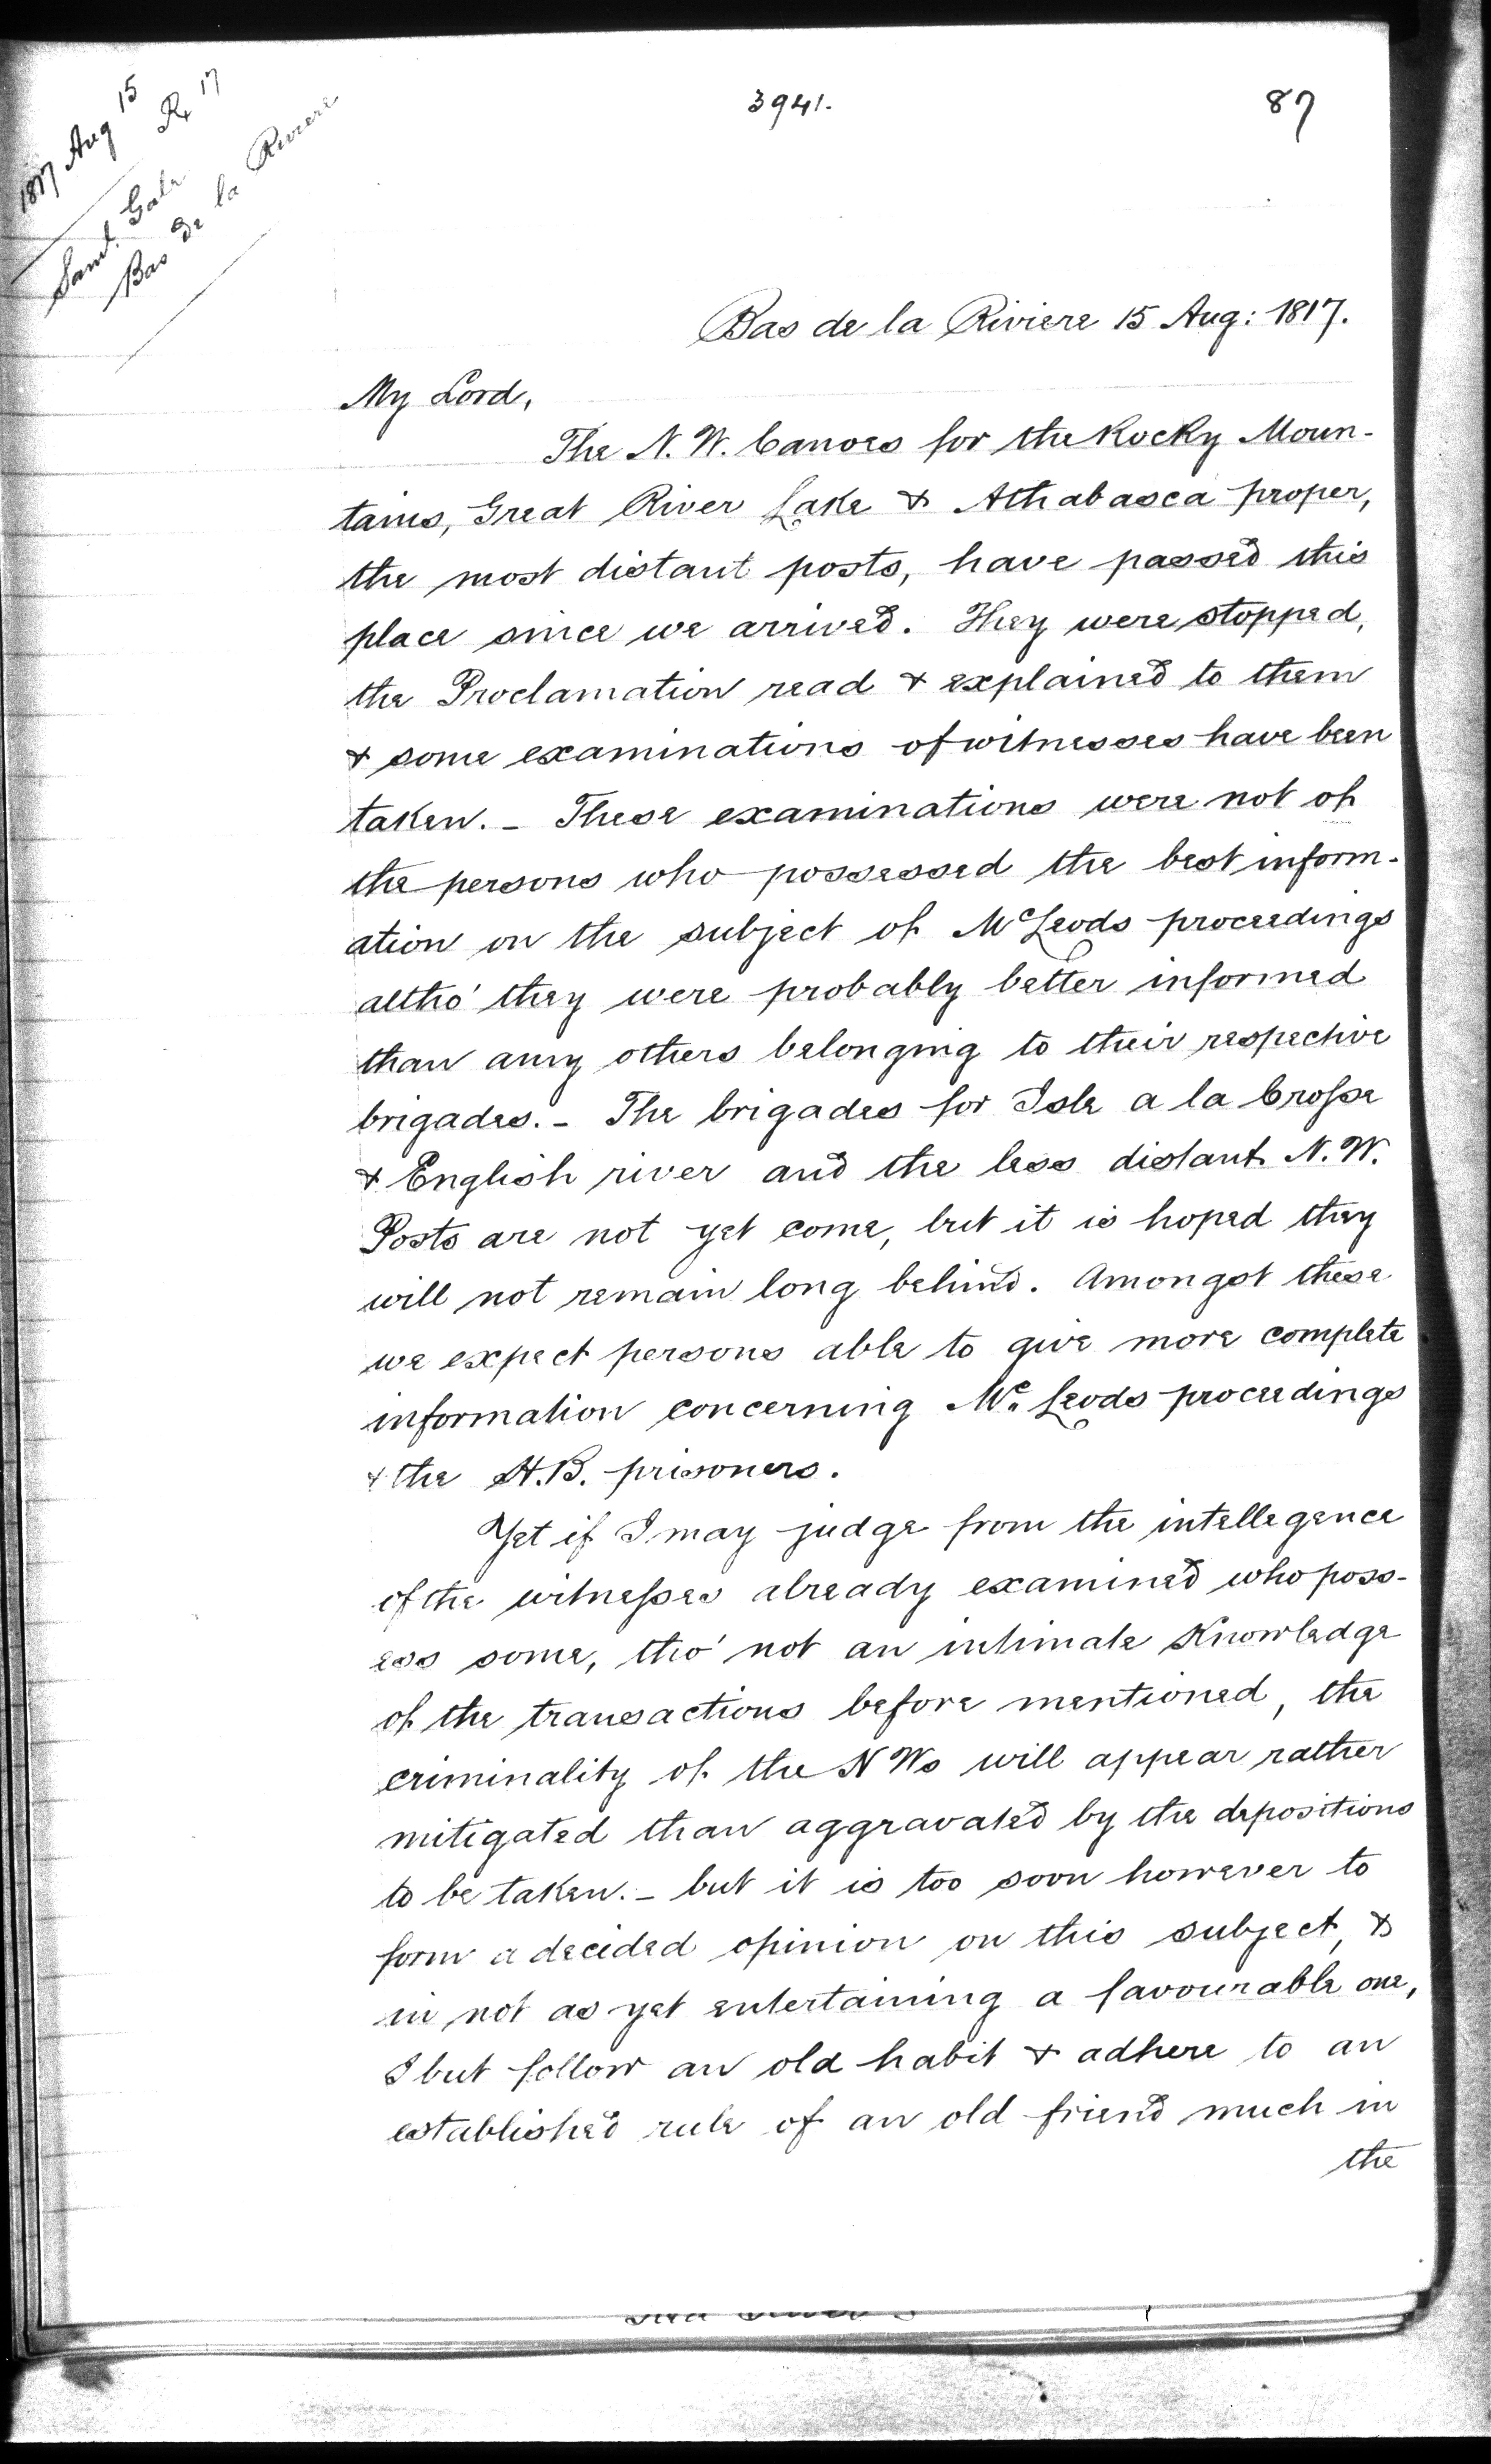 1817 Aug 15
R 17
Saml. Gale
Bas de la Riviere
3941.
87
Bas de la Riviere 15 Aug: 1817.
My Lord,
The N. W. Canoes for the Rocky Moun-
tains, Great River Lake & Athabasca proper,
the most distant posts, have passed this
place since we arrived. They were stopped,
the Proclamation read & explained to them
& some examinations of witnesses have been
taken. – These examinations were not of
the persons who possessed the best inform-
ation on the subject of McLeods proceedings
altho' they were probably better informed
than any others belonging to their respective
brigades. – The brigades for Isle a la Crosse
& English river and the less distant N. W.
Posts are not yet come, but it is hoped they
will not remain long behind. Amongst these
we expect persons able to give more complete
information concerning Mc. Leods proceedings
& the H.B. prisoners.
Yet if I may judge from the intellegence
of the witnesses already examined who poss-
ess some, tho' not an intimate Knowledge
of the transactions before mentioned, the
criminality of the N Ws will appear rather
mitigated than aggravated by the depositions
to be taken. – but it is too soon however to
form a decided opinion on this subject, &
in not as yet entertaining a favourable one,
I but follow an old habit & adhere to an
established rule of an old friend much in
the